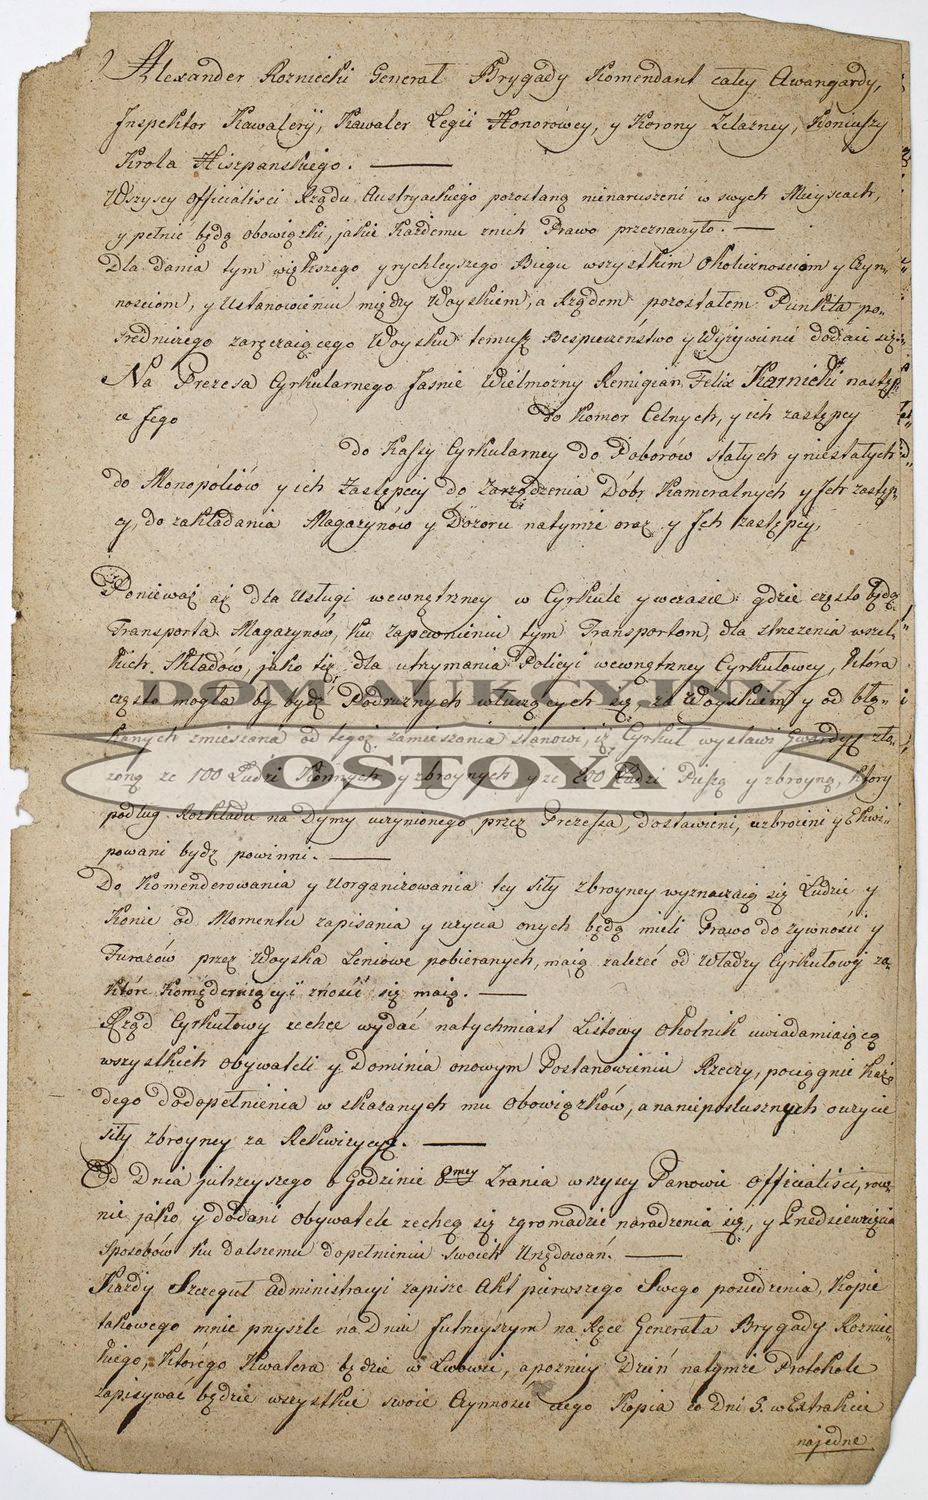 Alexander Rozniecki Generał Brygady Komendant całey Awangardy,
Inspektor Kawaleryi, Kawaler Legii Honorówey, y Korony Zelazney, Koniuszy
Krola Hiszpanskiego. —
Wszyscy Officialisci Rządu Austryackiego pozostaną nienaruszeni w swych Mieyscach,
y pełnić będą obowiązki, jakie Każdemu znich Prawo przeznaczyło. —
Dla dania tym większego y rychleyszego Biegu wszystkim Okolicznosciom y Czyn-
nosciom, y Ustanowieniu między Woyskiem, a Rządem pozostałem Punktu po-
sredniczego zaręczaiącego Woysku temuż Bespieczeństwo y Wyżywienie dodaie się:
Na Prezesa Cyrkularnego Jasnie Wielmożny Remigian Felix Karnicki następ-
ca Jego do Komor Celnych, y ich zastępcy
do Kassy Cyrkularney do Poborów stałych y niestałych
do Monopoliów y ich Zastępcy do Zarządzenia Dóbr Kameralnych y Ich zastęp-
cy, do zakładania Magazynów y Dozoru natymże oraz y Jch zastępcy,
Ponieważ aż dla Usługi wewnętrzney w Cyrkule y wczasie gdzie często będą
Transporta Magazynów, ku zapewnieniu tym Transportom, dla strzeżenia wszel-
kich Składów, jako też dla utrzymania Policyi wewnętrzney Cyrkułowey, która
często mogła by bydź Podrużnych włuczących się za Woyskiem y od błą-
kanych zmieszana od tegoż zamieszania stanowi, iż Cyrkuł wystawi Gwardyę zło-
żoną ze 100 Ludzi Konnych y zbroynych y ze 200 Ludzi Pieszą y zbroyną, ktory
podług Rozkładu na Dymy uczynionego przez Prezesza, dostawieni, uzbroieni y Ekwi-
powani bydź powinni. —
Do Komenderowania y Uorganizowania tey siły zbroyney wyznaczaią się Ludzie y
Konie od Momentu zapisania y użycia onych będą mieli Prawo do żywności y
Furażów przez Woyska Leniowe pobieranych, maią zależeć od Władzy Cyrkułowey za-
które Komęderuiący znosić się maią. —
Rząd Cyrkułowy zechce wydać natychmiast Listowy Okolnik uwiadamiaiącą
wszystkich Obywateli y Dominia onowym Postanowieniu Rzeczy, pociągnie każ-
dego dodopełnienia w skazanych mu Obowiązków, a nanieposłusznych o użycie
siły zbroyney za Rekwizycyą. —
Od Dnia jutrzeyszego o Godzinie 8mey Zrania wszyscy Panowie Officialisci, row-
nie jako y dodani Obywatele zechcą się zgromadzić naradzenia się, y Przedsiewzięcia
Sposobów ku dalszemu dopełnieniu swoich Urzędowań. —
Każdy Szczeguł administracyi zapisze Akt pierwszego Swego posiedzenia, Kopie
takowego mnie przyszle na Dniu Jutrzeyszym na Ręce Generała Brygady Roznie-
ckiego, Którego Kwatera będzie w Lwowie, a pozniey Dzień natymże Protokole
zapisywać będzie wszystkie swoie Czynności czego Kopia co Dni 5. w Extrakcie
najedne